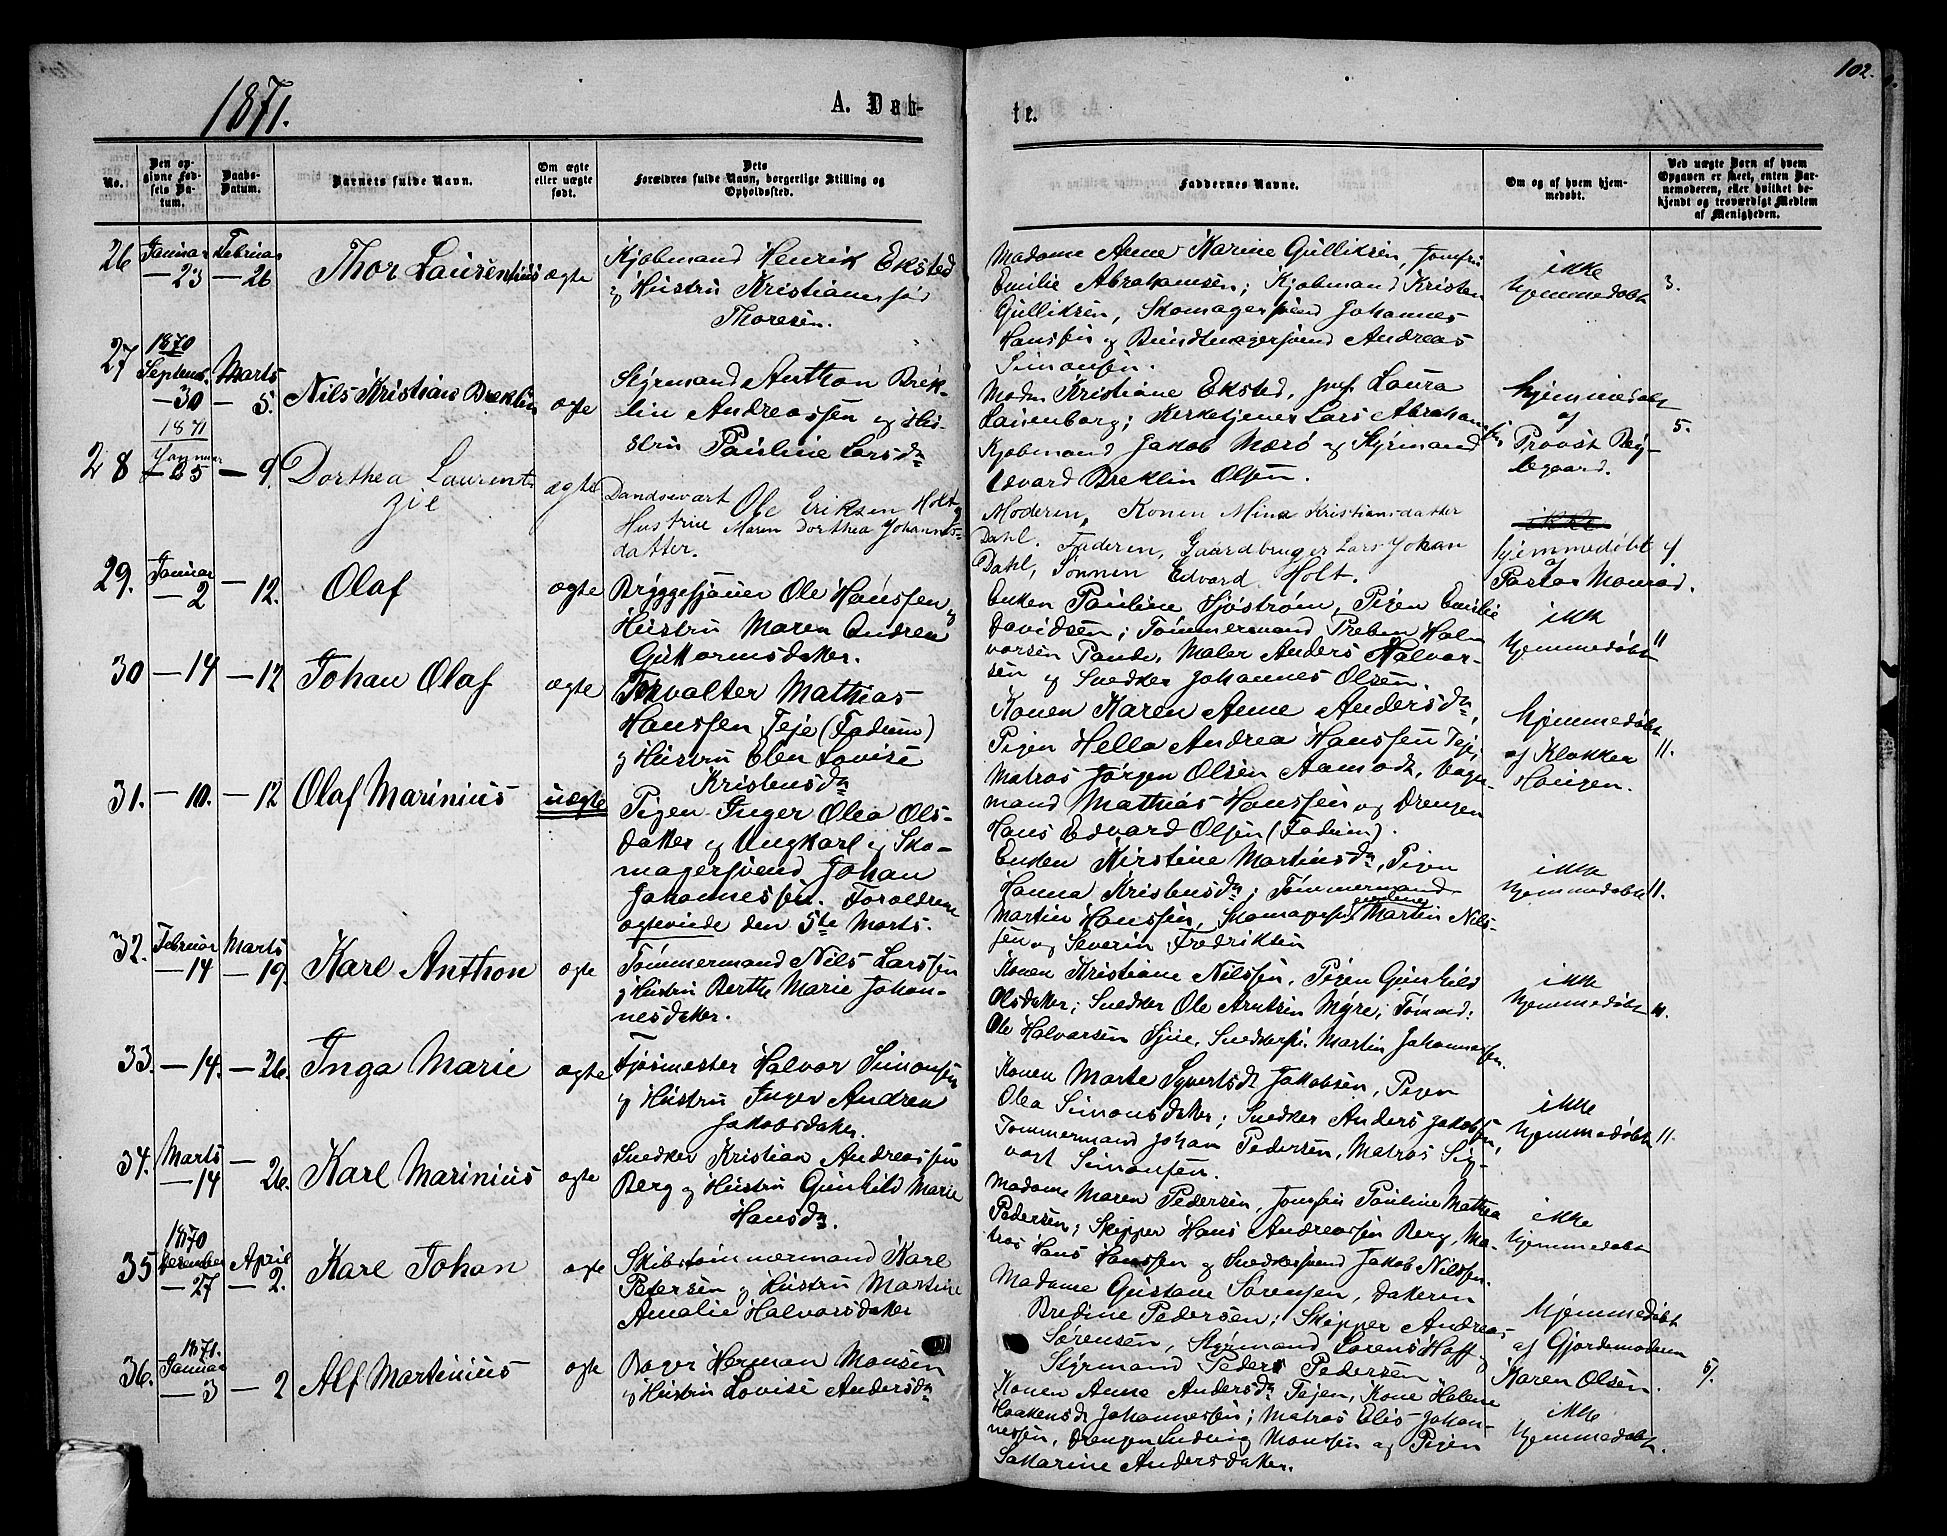 102.
1871.
A. Dab-
te.
No.
Den op-
givne Fød-
sels Da-
tum.
Daabs-
Datum.
Barnets fulde Navn.
Om ægte
eller uægte
født.
Dets
Forældres fulde Navn, borgerlige Stilling og
Opholdssted.
Faddernes Navne.
Om og af hvem hjem-
medøbt.
Ved uægte Barn af hvem
Opgaven er skeet, enten Bar-
nemoderen, eller hvilket be-
kjendt og troværdigt Medlem
af Menigheden.
26 Januar - 23 Februar - 26 Thor Laurentius ægte
Kjøbmand Henrik Eksted
og Hustru Kristiane
Thoresen.
Madame Anne Karine Gulliksen, Jomfru
Emilie Abrahamsen; Kjøbmand Kristen
Gulliksen, Skomagersvend Johannes
Hanssen og Bundtmagersvend Andreas
Simonsen.
ikke
hjemmedøbt
3.
27 1870 Septemb. - 30 Marts - 5. Nils Kristian Breklin ægte
Styrmand Anthon Brek-
lin Andreassen og Hu-
stru Pauline Larsdr
Mad. Kristiane Eksted, Jmf. Laura
Lauenborg; Kirketjener Lars Abraham
Kjøbmand Jakob Mærø og Styrmand
Edvard Breklin Olsen.
hjemmedøbt
af
Provst
5.
28 1871 Januar - 25 - 9. Dorthea Laurent-
zie
ægte
Dandsevært Ole Eriksen Holt og
Hustrue Maren Dorthea Johannes-
datter.
Moderen, Konen Mina Kristiansdatter
Dahl. Faderen, Gaardbruger Lars Johan
Dahl, Sønnen Edvard Holt.
ikke
hjemmedøbt
af
Pastor Monrad.
4.
29. Januar - 2 - 12. Olaf ægte
Bryggesjauer Ole Hanssen og
Hustru Maren Andrea
Guttormsdatter.
Enken Pauline Sjøstrøm, Pigen Emilie
Davidsen; Tømmermand Preben Hal-
vorsen Pande, Maler Anders Halvor-
sen og Snedker Johannes Olsen.
ikke
hjemmedøbt
11
30 - 14 - 12 Johan Olaf ægte
Forvalter Mathias
Hanssen Teje (Fadum)
og Hustru Elen Lovise
Kristensdr
Konen Karen Anne Andersdr,
Pigen Hella Andrea Hanssen Teje;
Matros Jørgen Olsen Aamodt, Vogn-
mand Mathias Hanssen og Drengen
Hans Edvard Olsen (Fadum).
hjemmedøbt
af Klokker
Haugen.
11.
31. - 10. - 12 Olaf Marinius uægte
Pigen Inger Olea Ols-
datter og Ungkarl og Sko-
magersvend Johan
Johannessen. Forældrene
ægteviede den 5te Marts.
Enken Kirstine Martinsdr, Pigen
Hanna Kristensdr; Tømmermand
Martin Hanssen, Skomagersvendene Martin Nils-
sen og Severin Fredriksen
ikke
hjemmedøbt
11.
32. Februar - 14 Marts - 19. Karl Anthon ægte
Tømmermand Nils Larssen
og Hustru Berthe Marie Johan-
nesdatter.
Konen Kristiane Nilssen, Pigen Gunhild
Olsdatter; Snedker Ole Arntsen Myre, Tømmd:
Ole Halvorsen Sjue, Snedkersv. Martin Johannessen.
ikke
hjemmedøbt
11.
33. - 14. - 26. Inga Marie ægte
Fjøsmester Halvor Simonsen
og Hustru Inger Andrea
Jakobsdatter.
Konen Marte Syvertsdr Jakobsen, Pigen
Olea Simonsdatter; Snedker Anders Jakobsen,
Tømmermand Johan Pedersen, Matros Sig-
vart Simonsen.
ikke
hjemmedøbt
11.
34. Marts - 14 - 26. Karl Marinius ægte
Snedker Kristian Andreassen
Berg og Hustru Gunhild Marie
Hansdr.
Madame Maren Pedersen, Jomfru Pauline Mathea
Pedersen; Skipper Hans Andreassen Berg, Ma-
tros Hans Hanssen og Snedkersvend Jakob Nilssen.
ikke
hjemmedøbt
35 1870 Desember - 27 April - 2. Karl Johan ægte
Skibstømmermand Karl
Petersen og Hustru Martine
Amalie Halvorsdatter
Madame Gustave Sørensen, Datteren
Bredine Pedersen; Skipper Andreas
Sørensen, Styrmand Lorens Hoff
Styrmand Peder Pedersen
hjemmedøbt
af Gjordemoderen
Karen Olsen.
36. 1871. Januar - 3 - 2 Alf Martinius ægte
Bager Herman Monsen
og Hustru Lovise Andersdr
Konen Anne Andersdr Tejen, Kone Helene
Haakensdr Johannessen; Matros Elis Johan-
nessen, Drengen Ludvig Monssen og Pigen
Sakarine Andersdatter.
ikke
hjemmedøbt.